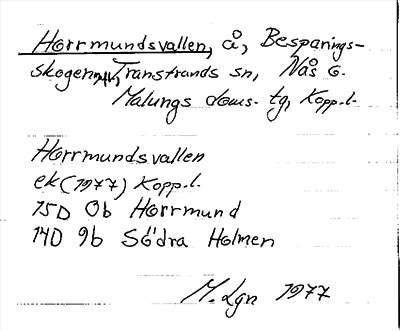 Horrmundsvallen, å, Besparings-
skogen, Transtrands sn, Nås o.
Malungs doms. tg, Kopp.l.
Horrmundsvallen
ek (1977) Kopp.l.
15D 0b Horrmund
14D 9b Södra Holmen
M. Lgn 1977